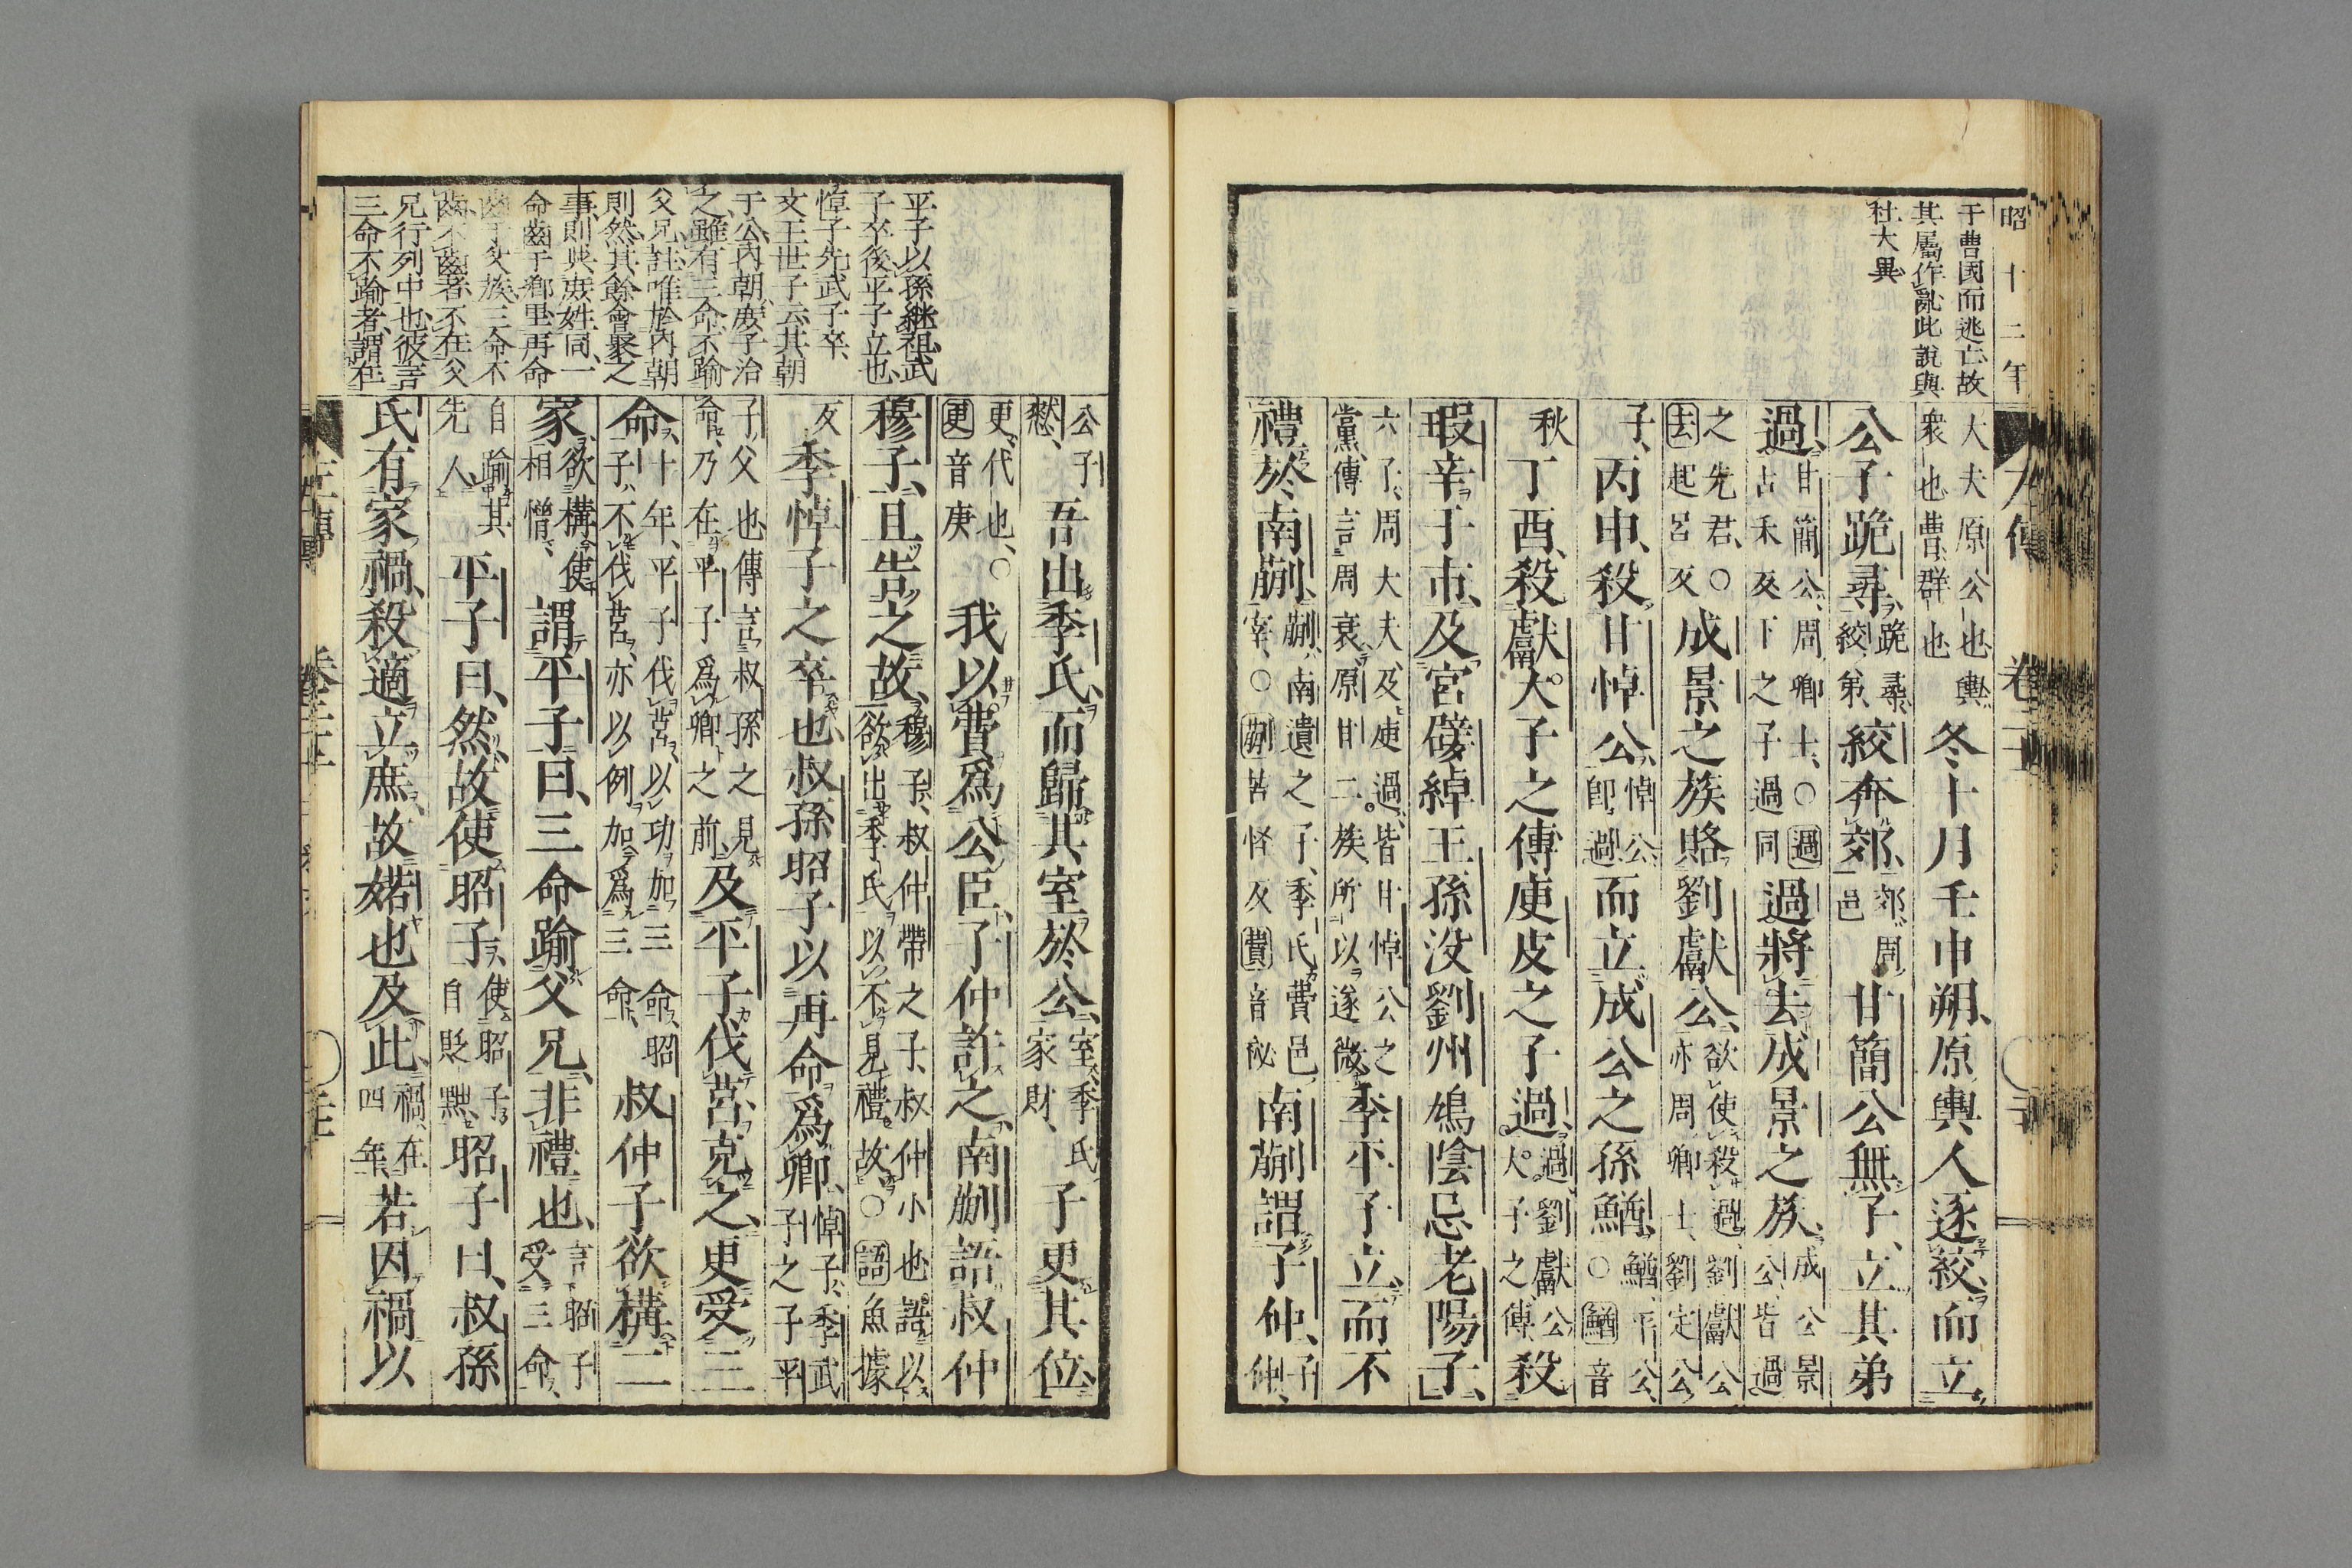 昭十二年
于曹國而逃亡故
其屬作亂此說與
杜大異
大夫原公也輿
衆也曹群也
冬十月壬申朔原輿人逐絞而立
公子跪尋跪尋絞弟絞奔郊郊周邑甘簡公無子立其弟
過甘簡公周卿士○過古禾反下之子過同過將去成景之族成公景公皆過
之先君○去起呂反成景之族賂劉獻公欲使殺過劉獻公亦周卿士劉定公
子丙申殺甘悼公悼公即過而立成公之孫鰌鰌平公○鰌音
秋丁酉殺獻大子之傅庾皮之子過過劉獻公大子之傅殺
瑕辛于市及宮嬖綽王孫沒劉州鳩陰忌老陽子
六子周大夫及庾過皆甘悼公之黨傳言周衰原甘二族所以遂微季平子立而不
禮於南蒯蒯南遺之子季氏費邑宰○蒯苦怪反費音祕南蒯謂子仲子仲
平子以孫繼祖武
子卒後平子立也
悼子先武子卒
文王世子云其朝
于公內朝庶子治
之雖有三命不踰
父兄註唯於內朝
則然其餘會聚之
事則與庶姓同一
命齒于鄉里再命
齒于父族三命不
齒不齒者不在父
兄行列中也彼言
三命不踰者謂在
公子憖吾出季氏而歸其室於公室季氏家財子更其位
更代也○更音庚我以費爲公臣子仲許之南蒯語叔仲
穆子且告之故穆子叔仲帶之子叔仲小也語以欲出季氏以不見禮故○語魚據
反季悼子之卒也叔孫昭子以再命爲卿悼子季武子之子平
子父也傳言叔孫之見命乃在平子爲卿之前及平子伐莒克之更受三
命十年平子伐莒以功加三命昭子不伐莒亦以例加爲三命叔仲子欲構二
家欲構使相憎謂平子曰三命踰父兄非禮也言昭子受三命
自踰其先人平子曰然故使昭子使昭子自貶黜昭子曰叔孫
氏有家禍殺適立庶故婼也及此禍在四年若因禍以